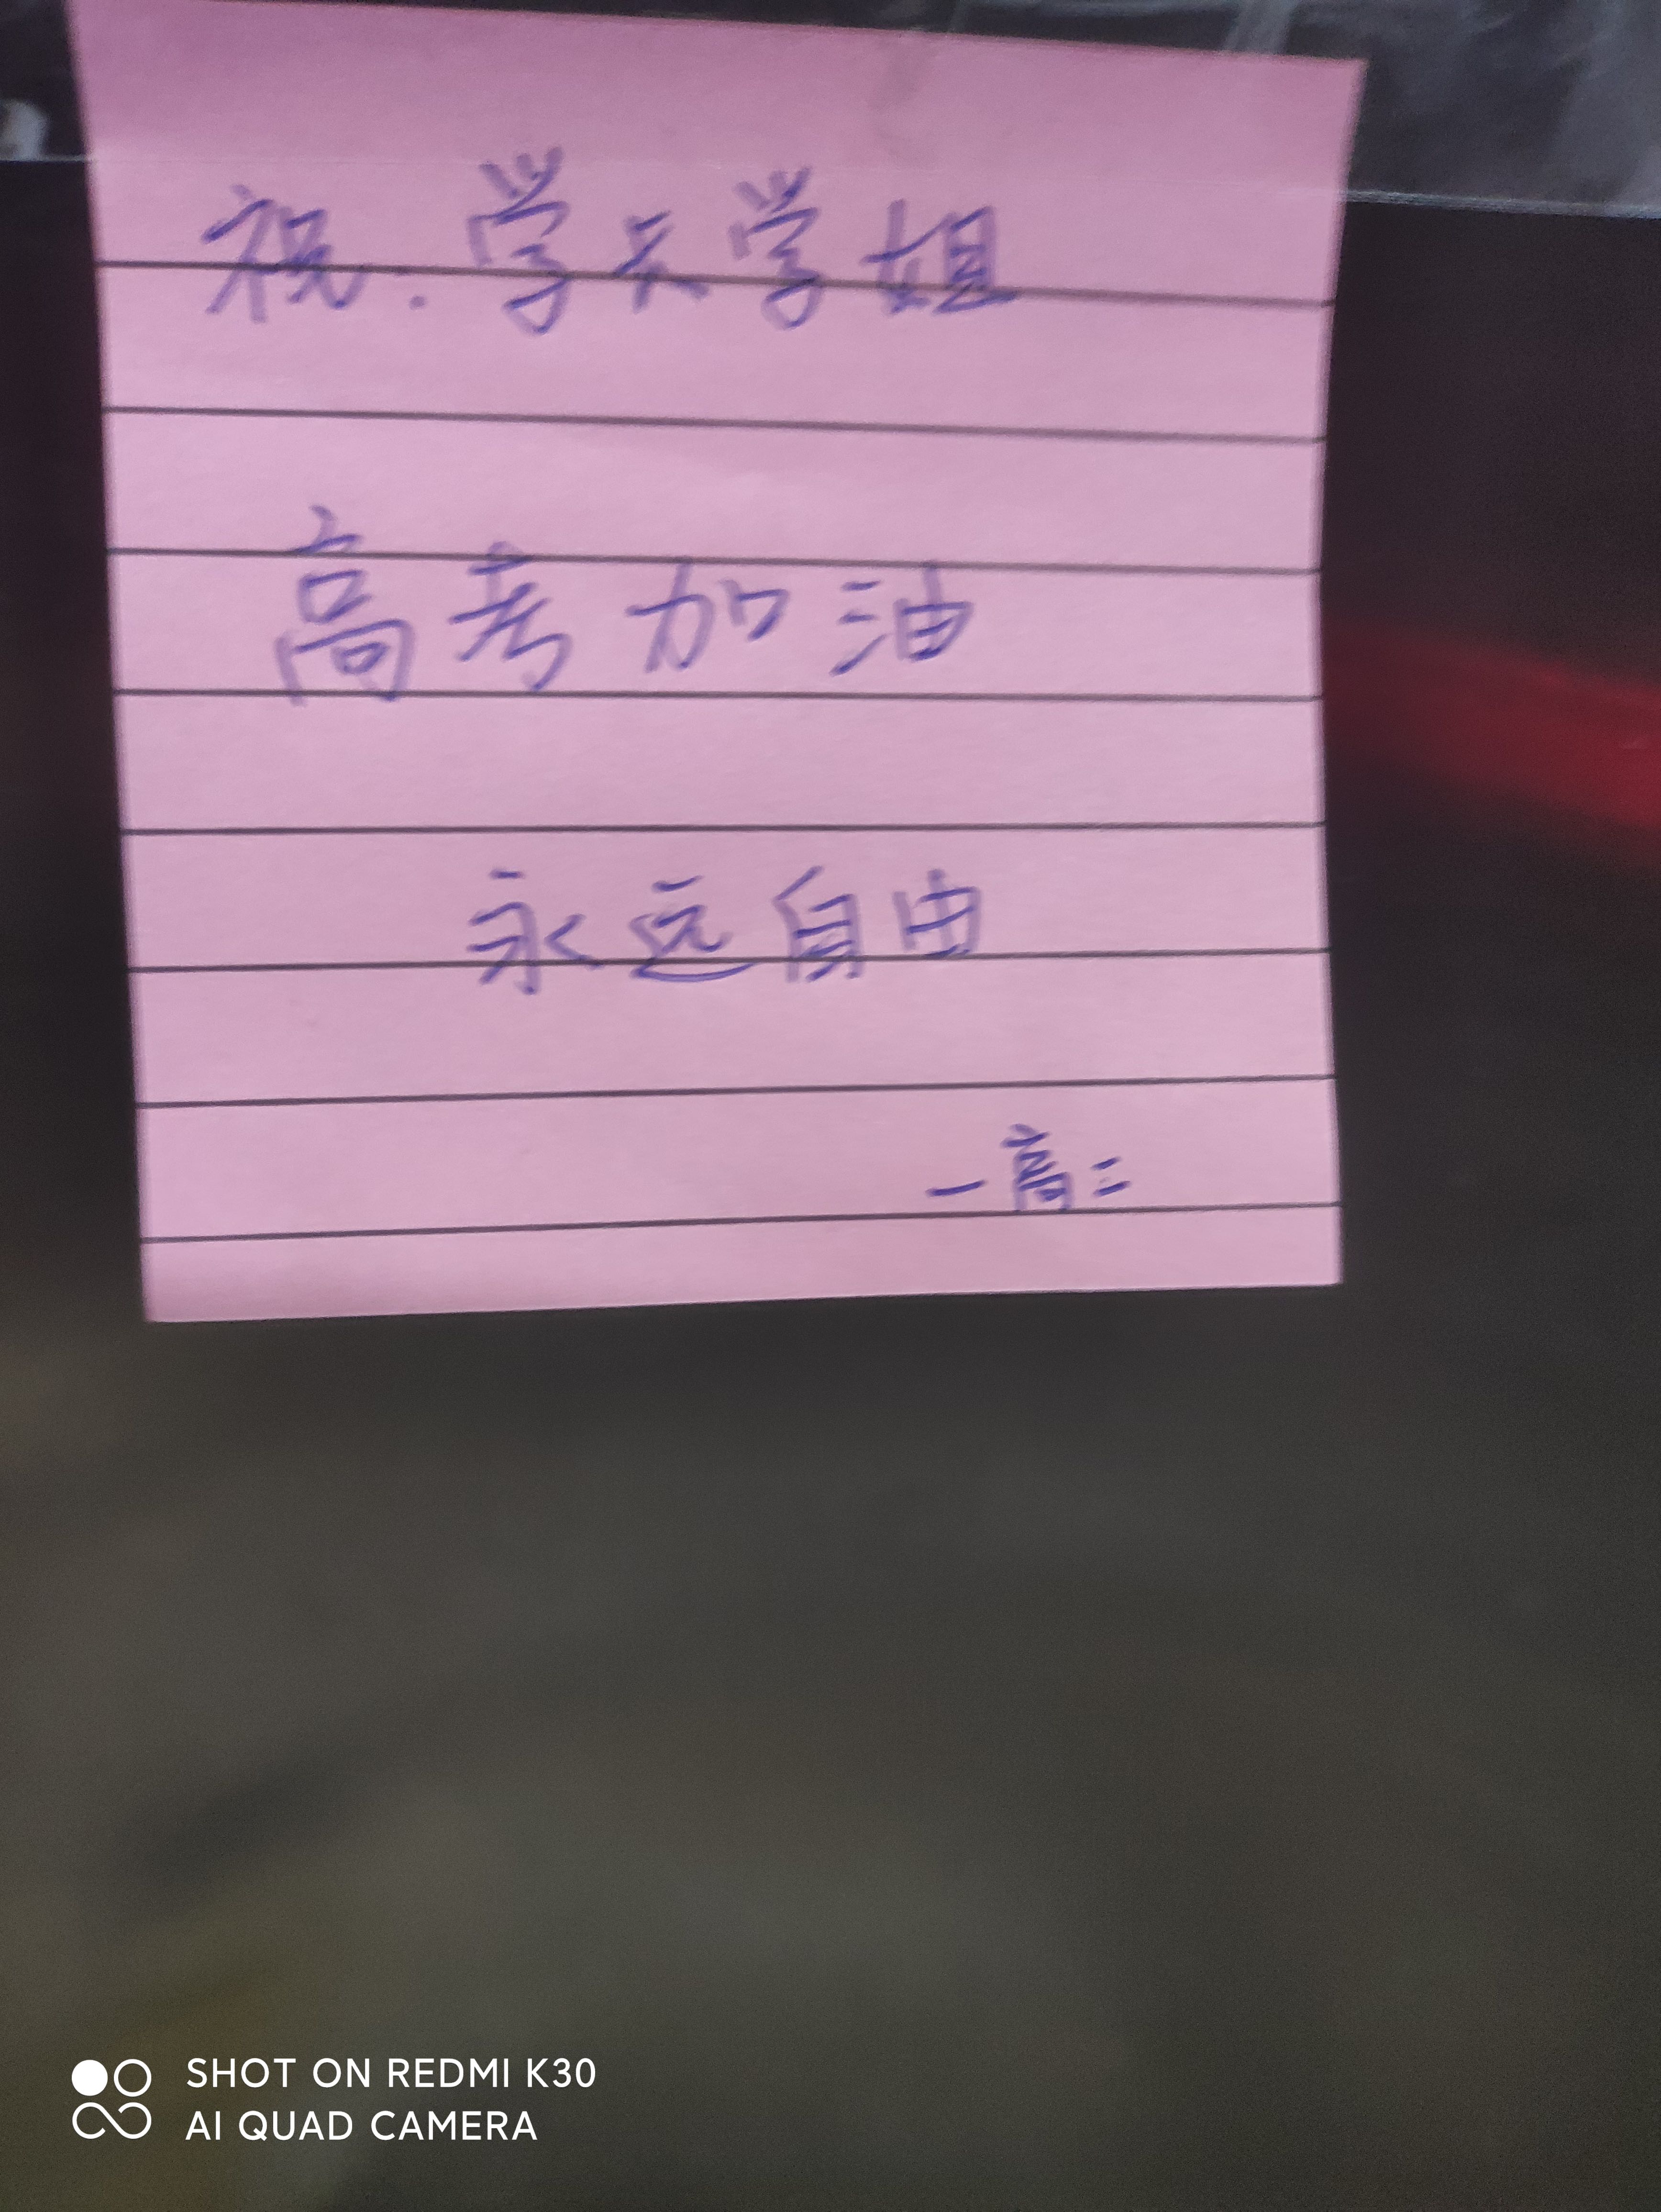 祝.学长学姐
高考加油
永远自由
—高二
SHOT ON REDMI K30
AI QUAD CAMERA